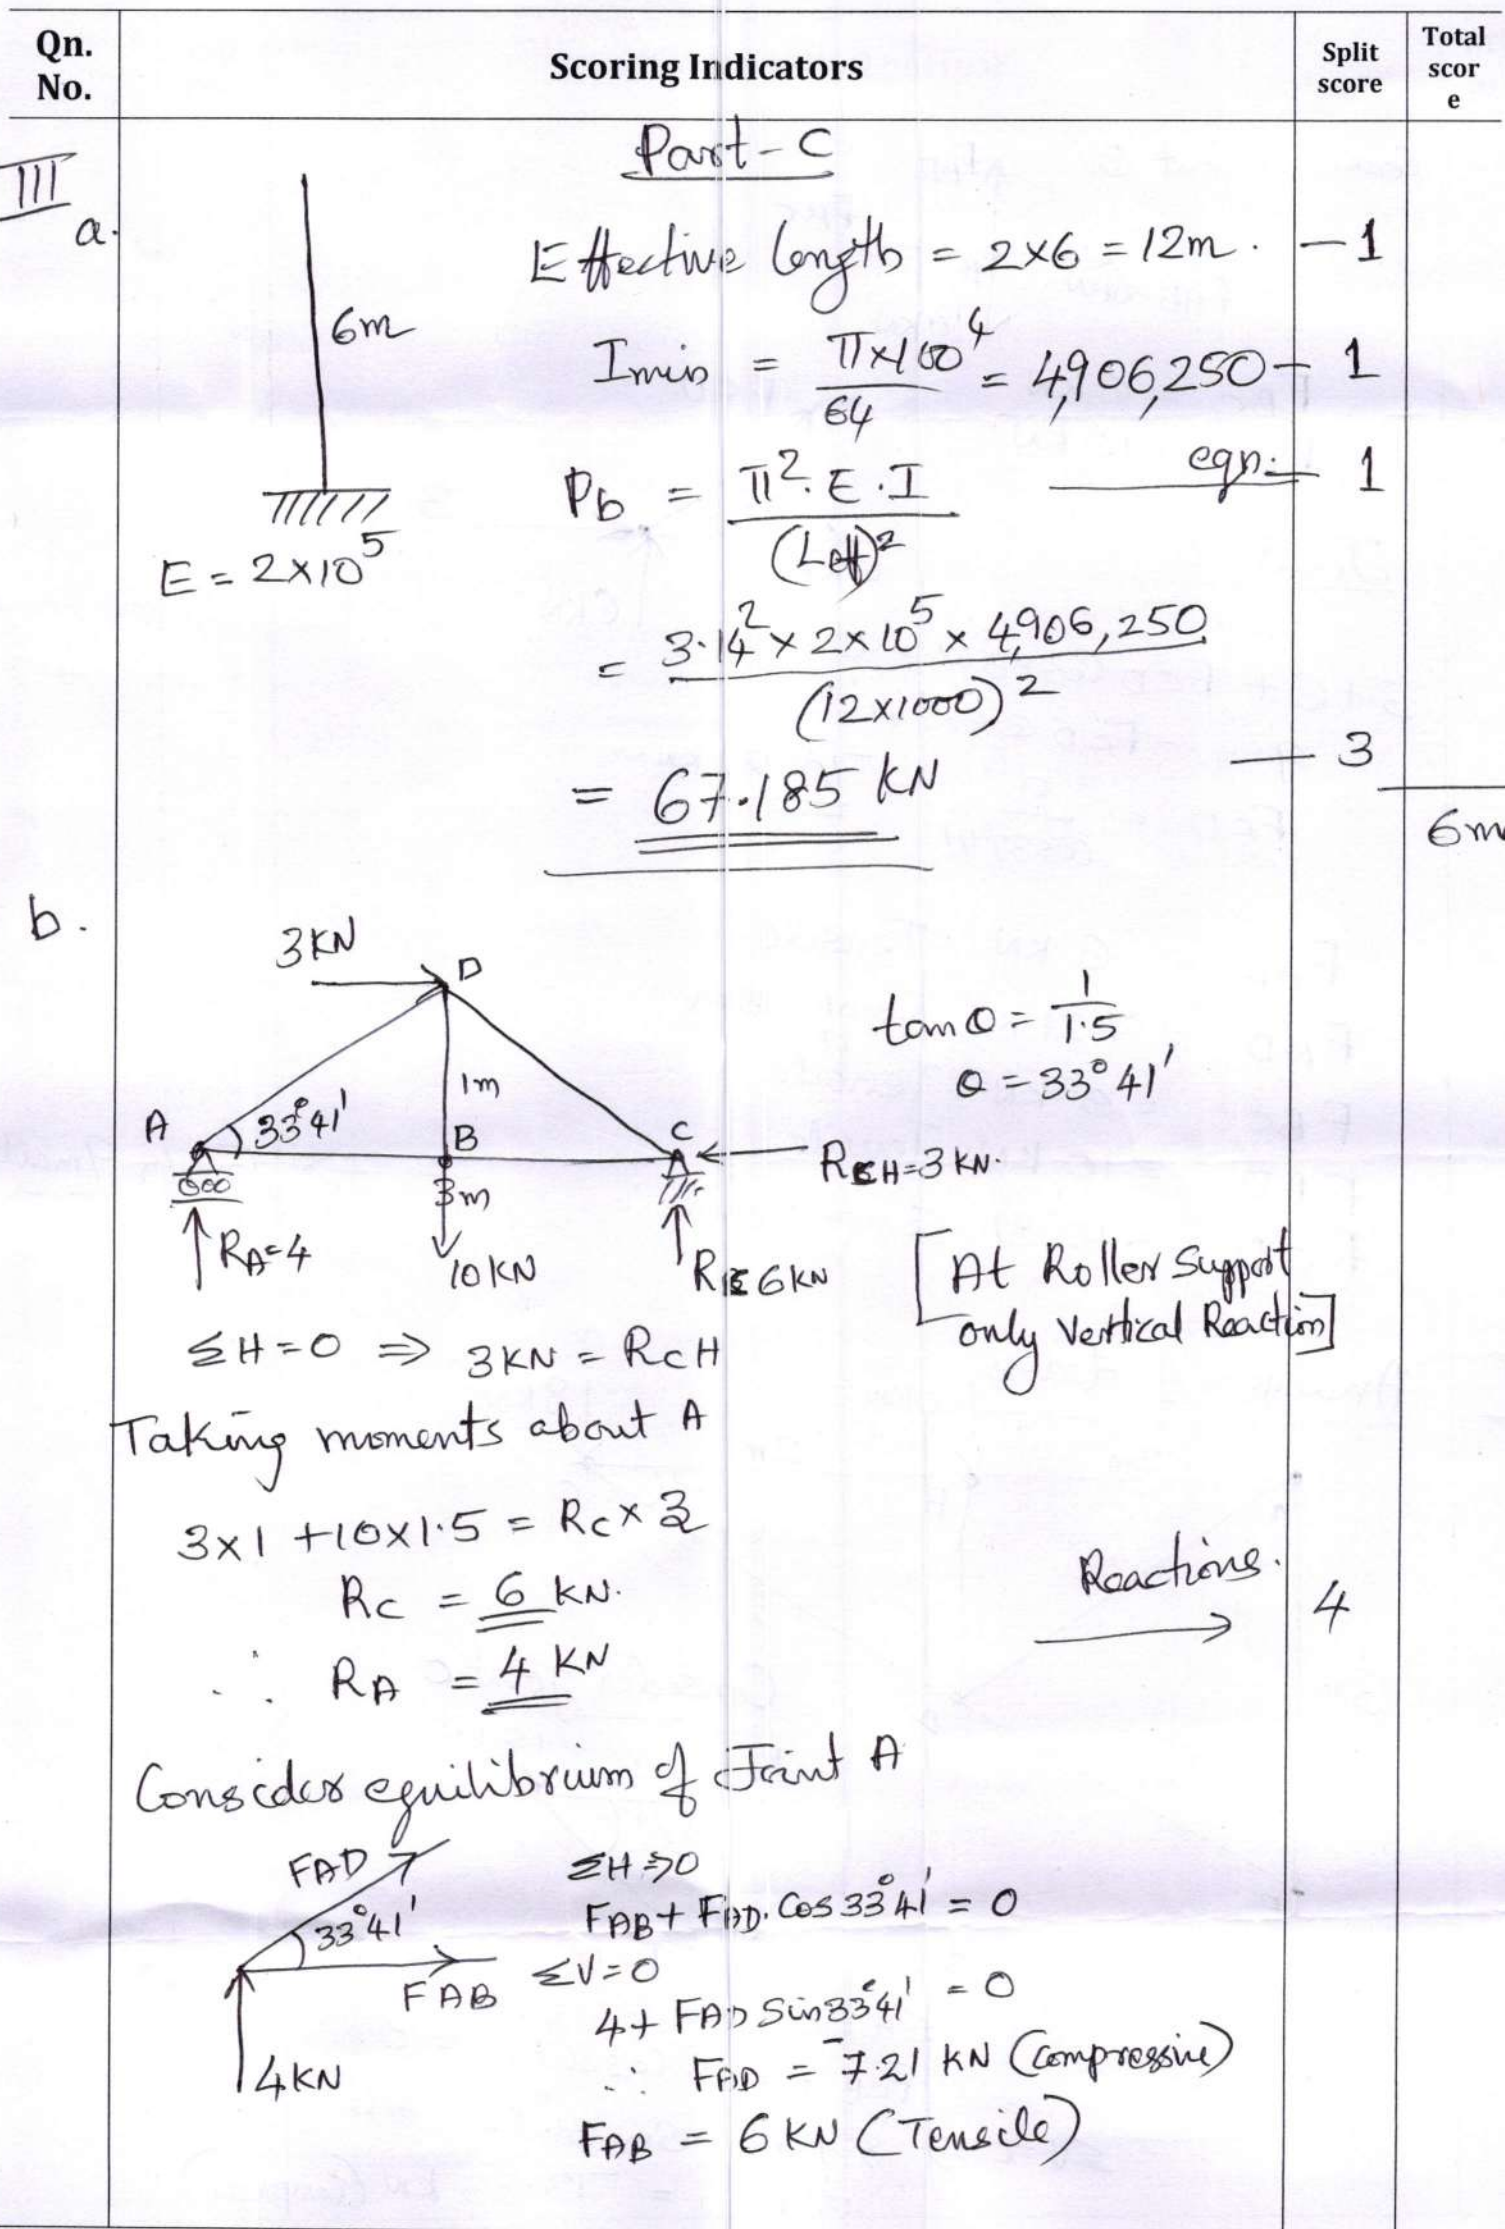 Qn. No.
Scoring Indicators
Split score
Total scor e
Part - C
III
a.
6m
E = 2×10^5
Effective length = 2×6 = 12m. — 1
Imin = π×100^4 / 64 = 4,906,250 — 1
Pb = π^2. E. I / (Leff)^2 eqn: — 1
= 3.14^2 × 2×10^5 × 4,906,250 / (12×1000)^2
= 67.185 KN — 3
6m
b.
3KN
D
1m
A
33°41'
B
C
3m
RCH=3KN.
RA=4
10KN
RC 6KN
tan θ = 1/1.5
θ = 33°41'
[At Roller Support
only Vertical Reaction]
ΣH=0 ⇒ 3KN = RCH
Taking moments about A
3×1 +10×1.5 = Rc×3
Rc = 6 KN.
∴ RA = 4 KN
Reactions. → 4
Consider equilibrium of Joint A
FAD
33°41'
FAB
4KN
ΣH⇒0
FAB + FAD. Cos 33°41' = 0
ΣV=0
4+ FAD Sin33°41' = 0
∴ FAD = -7.21 KN (Compressive)
FAB = 6 KN (Tensile)